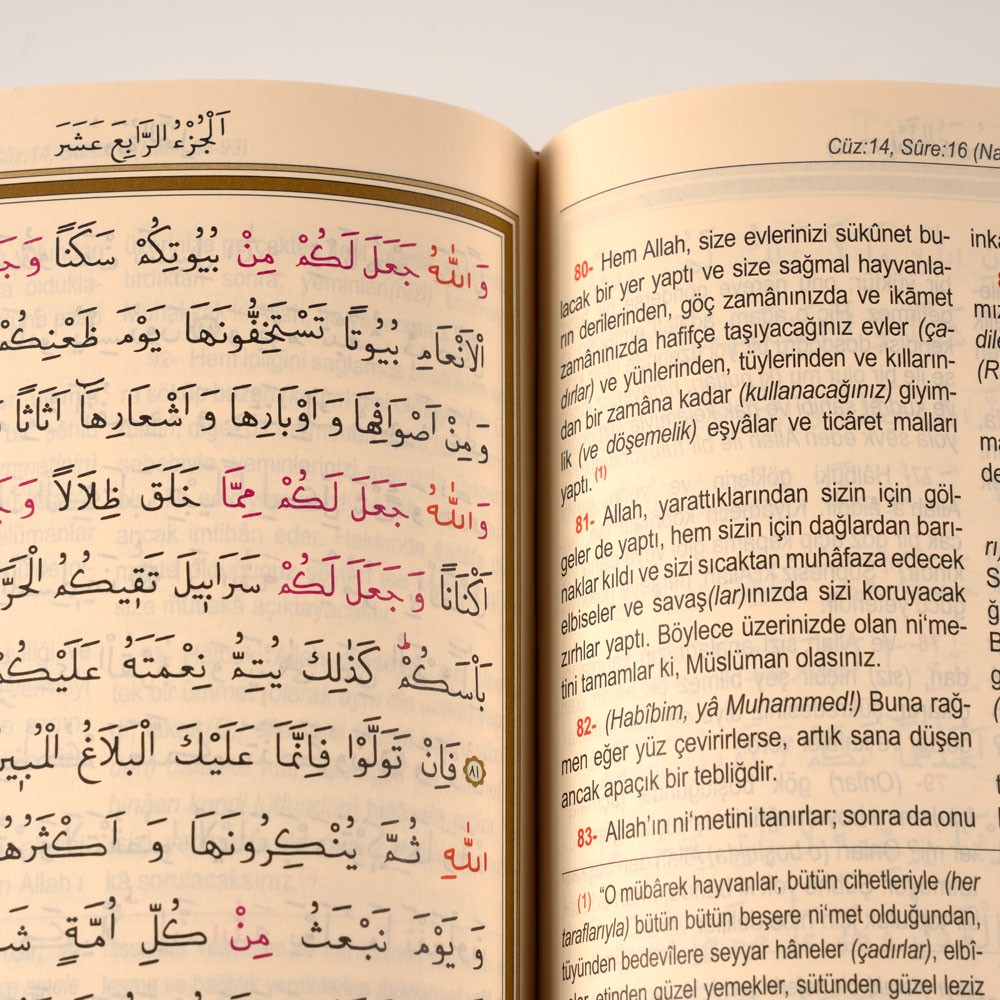 اَلْجُزْءُ الرَّابِعَ عَشَرَ
وَاللّٰهُ جَعَلَ لَكُمْ مِنْ بُيُوتِكُمْ سَكَنًا
الْاَنْعَامِ بُيُوتًا تَسْتَخِفُّونَهَا يَوْمَ ظَعْنِكُمْ
وَمِنْ اَصْوَافِهَا وَاَوْبَارِهَا وَاَشْعَارِهَٓا اَثَاثًا
وَاللّٰهُ جَعَلَ لَكُمْ مِمَّا خَلَقَ ظِلَالًا
اَكْنَانًا وَجَعَلَ لَكُمْ سَرَابِيلَ تَقِيكُمُ الْحَرَّ
بَاْسَكُمْ كَذٰلِكَ يُتِمُّ نِعْمَتَهُ عَلَيْكُمْ
٨١ فَاِنْ تَوَلَّوْا فَاِنَّمَا عَلَيْكَ الْبَلَاغُ الْمُبِينُ
اللّٰهِ ثُمَّ يُنْكِرُونَهَا وَاَكْثَرُهُ
وَيَوْمَ نَبْعَثُ مِنْ كُلِّ اُمَّةٍ
Cüz:14, Sûre:16 (Na
80- Hem Allah, size evlerinizi sükûnet bu-
lacak bir yer yaptı ve size sağmal hayvanla-
rın derilerinden, göç zamânınızda ve ikâmet
zamânınızda hafifçe taşıyacağınız evler (ça-
dırlar) ve yünlerinden, tüylerinden ve kılların-
dan bir zamâna kadar (kullanacağınız) giyim-
lik (ve döşemelik) eşyâlar ve ticâret malları
yaptı. (1)
81- Allah, yarattıklarından sizin için göl-
geler de yaptı, hem sizin için dağlardan barı-
naklar kıldı ve sizi sıcaktan muhâfaza edecek
elbiseler ve savaş(lar)ınızda sizi koruyacak
zırhlar yaptı. Böylece üzerinizde olan ni‘me-
tini tamamlar ki, Müslüman olasınız.
82- (Habîbim, yâ Muhammed!) Buna rağ-
men eğer yüz çevirirlerse, artık sana düşen
ancak apaçık bir tebliğdir.
83- Allah’ın ni‘metini tanırlar; sonra da onu
(1) “O mübârek hayvanlar, bütün cihetleriyle (her
taraflarıyla) bütün bütün beşere ni‘met olduğundan,
tüyünden bedevîlere seyyar hâneler (çadırlar), elbî-
etinden güzel yemekler, sütünden güzel leziz